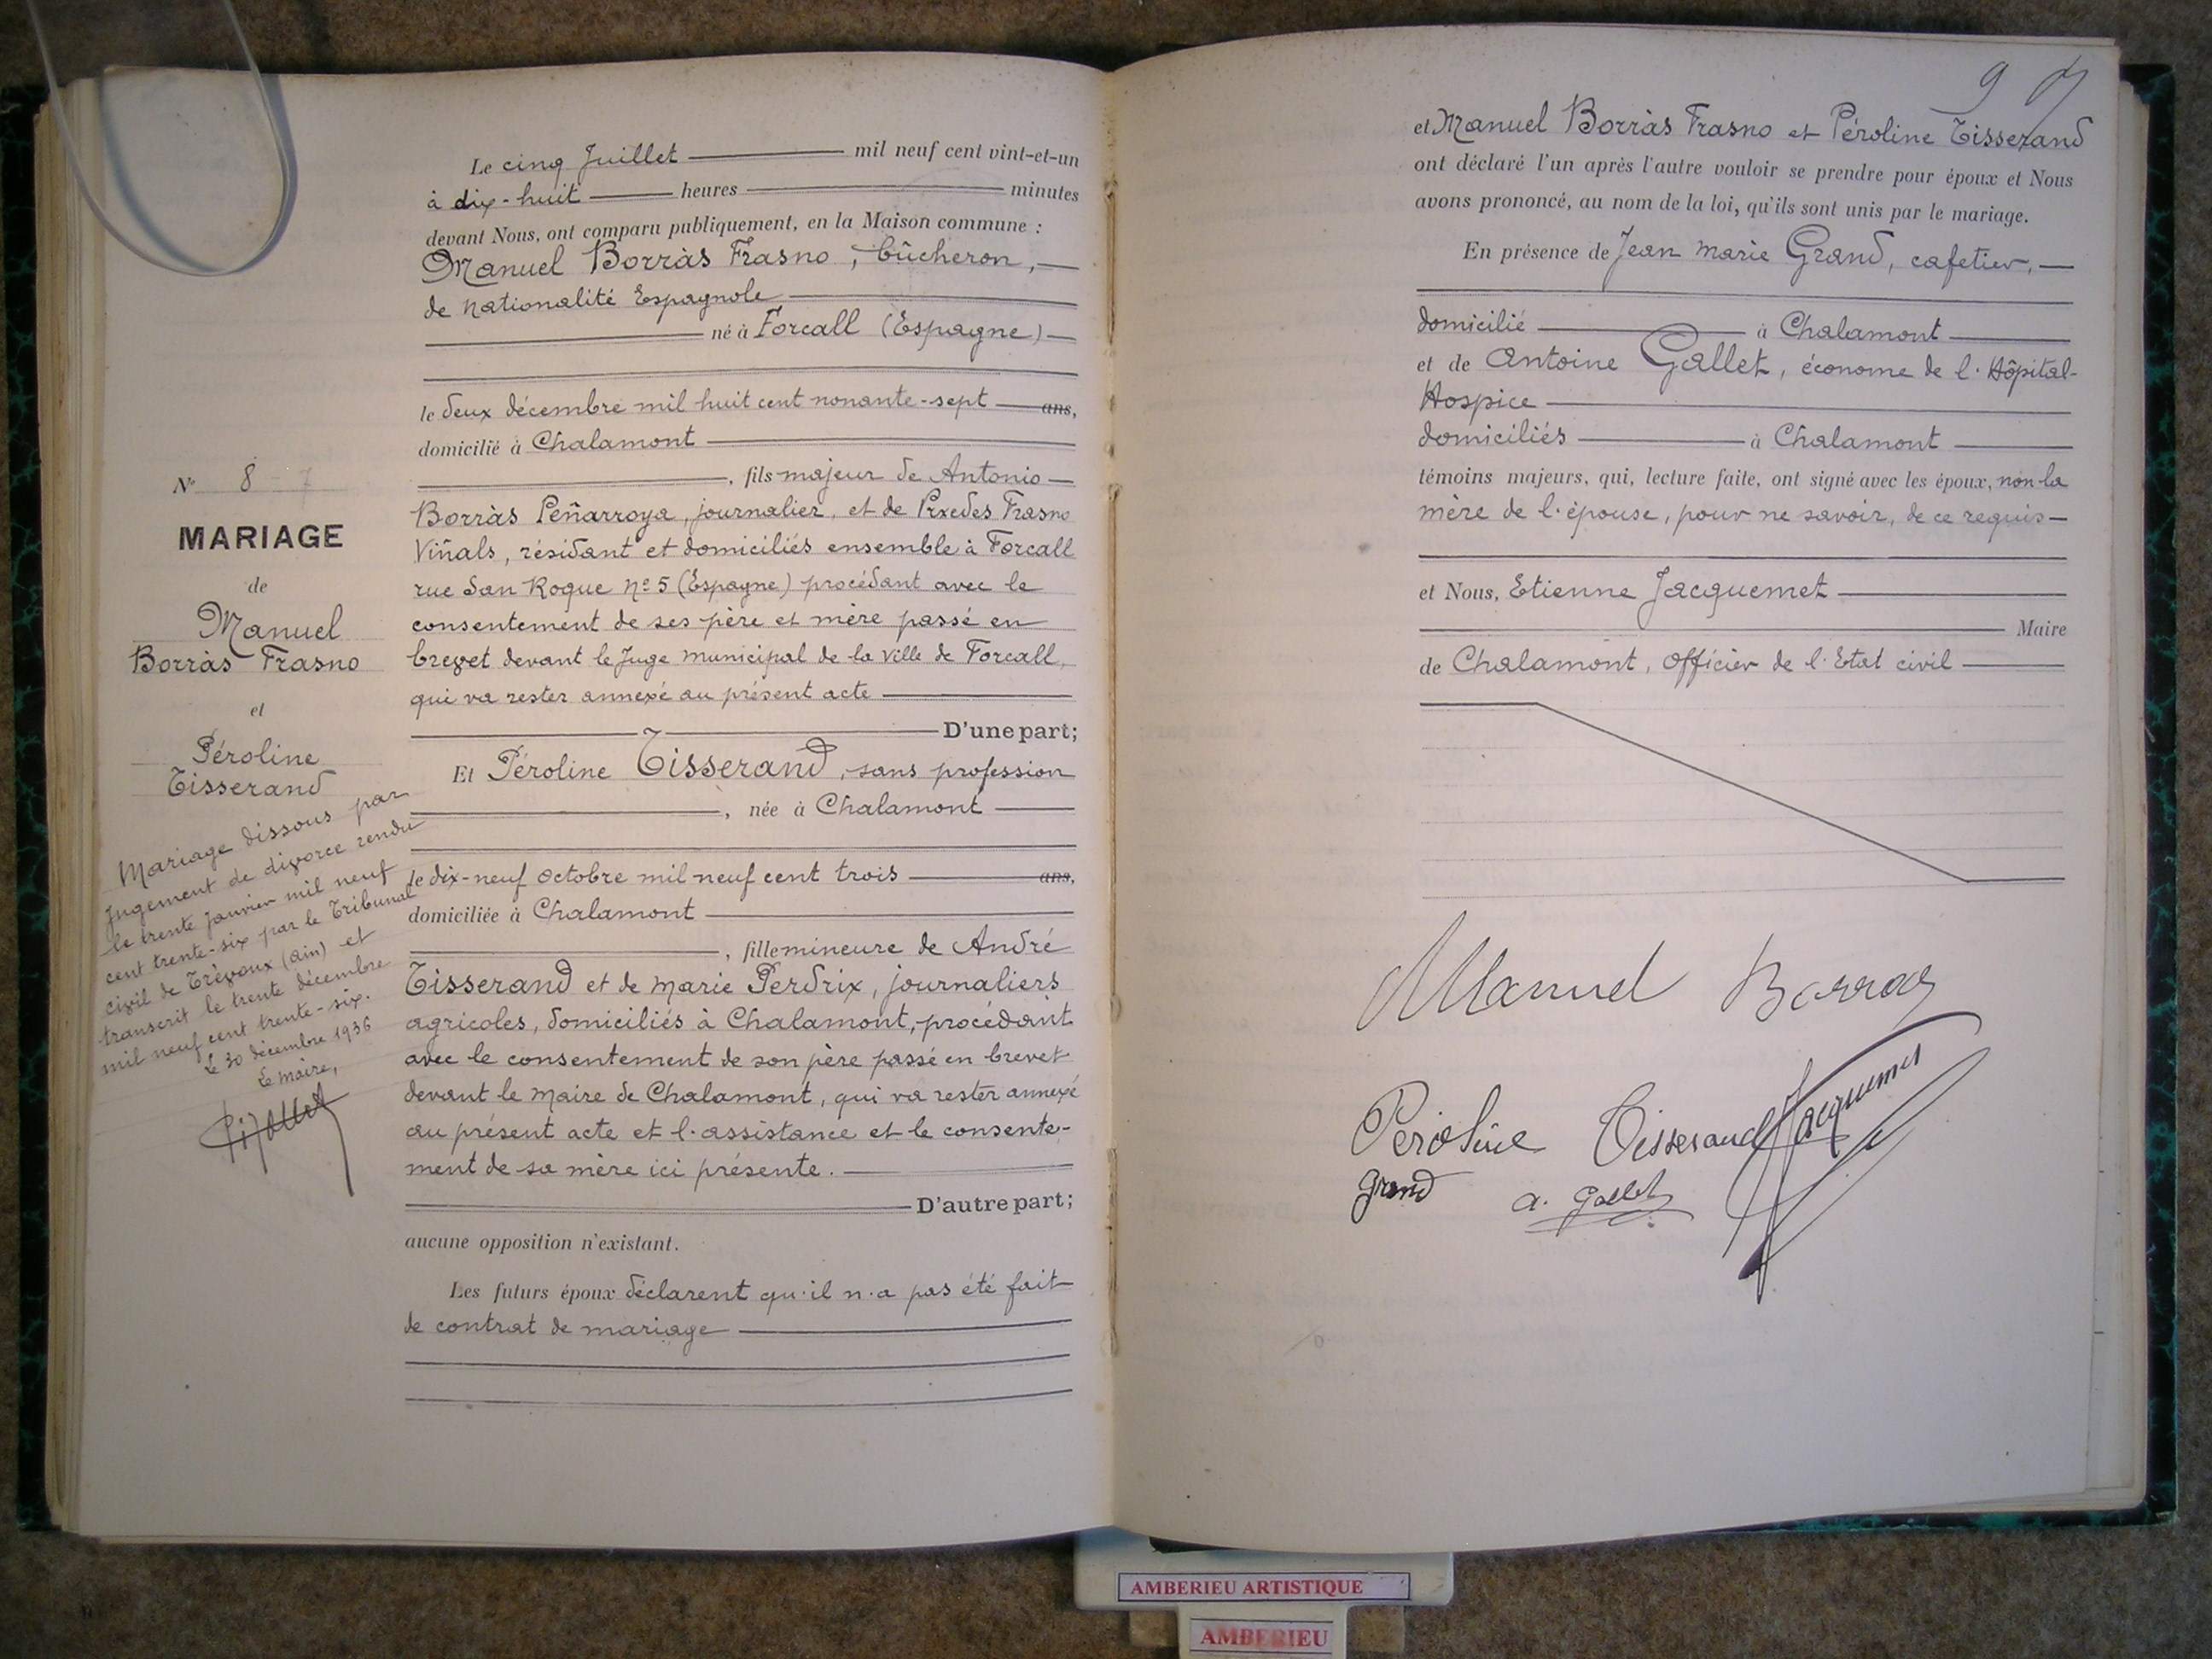 Le cinq Juillet mil neuf cent vint-et-un
à dix-huit heures minutes
devant Nous, ont comparu publiquement, en la Maison commune :
Manuel Borràs Frasno, bûcheron,
de nationalité Espagnole
né à Forcall (Espagne)
le deux décembre mil huit cent nonante-sept ans,
domicilié à Chalamont
, fils majeur de Antonio
Borràs Peñarroya, journalier, et de Prxedes Frasno
Viñals, résidant et domiciliés ensemble à Forcall
rue San Roque Nº 5 (Espagne) procédant avec le
consentement de ses père et mère passé en
brevet devant le Juge municipal de la ville de Forcall,
qui va rester annexé au présent acte
D'une part;
Et Péroline Tisserand, sans profession
, née à Chalamont
le dix-neuf octobre mil neuf cent trois ans,
domiciliée à Chalamont
, fille mineure de André
Tisserand et de Marie Perdrix, journaliers
agricoles, domiciliés à Chalamont, procédant
avec le consentement de son père passé en brevet
devant le Maire de Chalamont, qui va rester annexé
au présent acte et l'assistance et le consente-
ment de sa mère ici présente.
D'autre part;
aucune opposition n'existant.
Les futurs époux déclarent qu'il n'a pas été fait
de contrat de mariage
Nº 8 7
MARIAGE
de
Manuel
Borràs Frasno
et
Péroline
Tisserand
Mariage dissous par
Jugement de divorce rendu
le trente Janvier mil neuf
cent trente-six par le Tribunal
civil de Trévoux (Ain) et
transcrit le trente décembre
mil neuf cent trente-six.
Le 30 décembre 1936
Le Maire,
9
et Manuel Borràs Frasno et Péroline Tisserand
ont déclaré l'un après l'autre vouloir se prendre pour époux et Nous
avons prononcé, au nom de la loi, qu'ils sont unis par le mariage.
En présence de Jean Marie Grand, cafetier,
domicilié à Chalamont
et de Antoine Gallet, économe de l'Hôpital-
Hospice
domiciliés à Chalamont
témoins majeurs, qui, lecture faite, ont signé avec les époux, non la
mère de l'épouse, pour ne savoir, de ce requis
et Nous, Etienne Jacquemet
Maire
de Chalamont, officier de l'Etat civil
Manuel Borras
Péroline Tisserand Jacquemet
Grand a. Gallet
AMBERIEU ARTISTIQUE
AMBERIEU